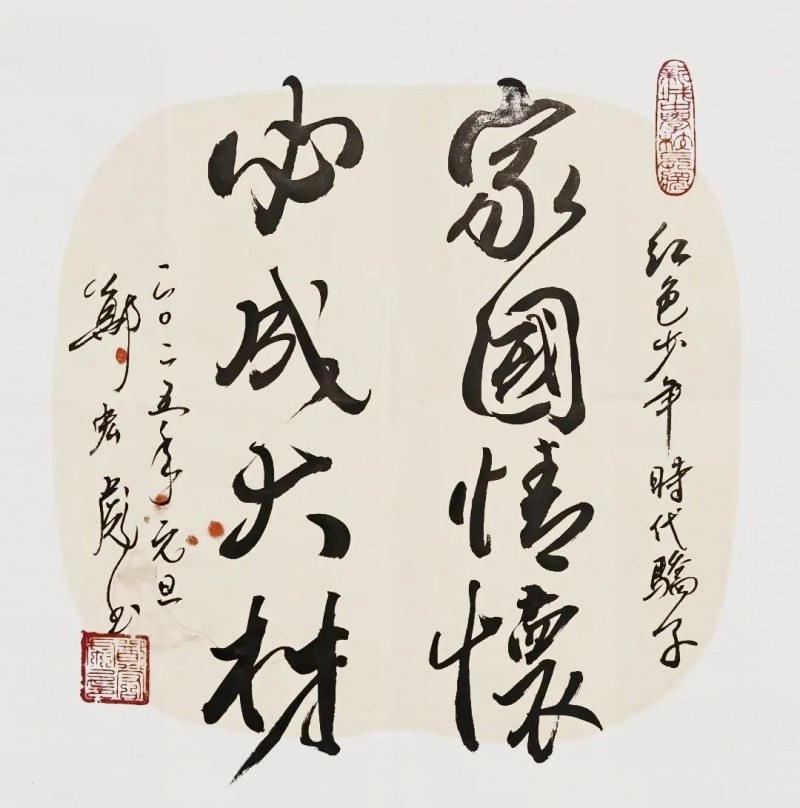 红色少年時代驕子
家國情懷
必成大材
二〇二五年元旦
鄭宏彪书